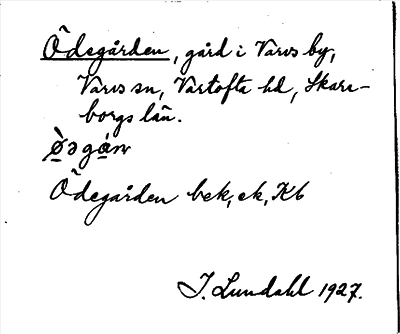 Ödegården, gård i Varvs by,
Varvs sn, Vartofta hd, Skara-
borgs län.
Ödegården bek, ek, Kb
I. Lundahl 1927.